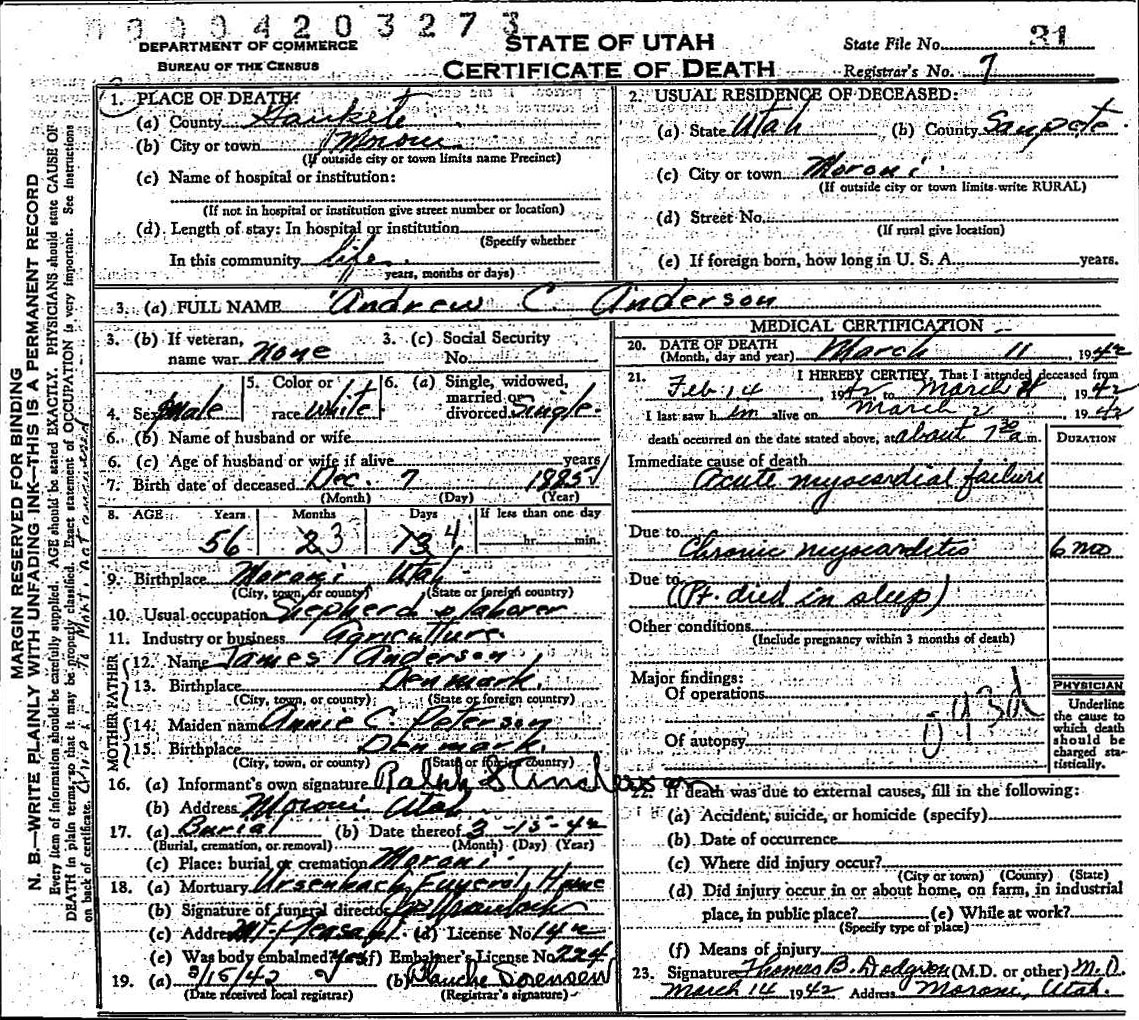 00004203273
DEPARTMENT OF COMMERCE
BUREAU OF THE CENSUS
STATE OF UTAH
CERTIFICATE OF DEATH
State File No. 31
Registrar's No. 7
MARGIN RESERVED FOR BINDING
N. B.—WRITE PLAINLY WITH UNFADING INK—THIS IS A PERMANENT RECORD
Every item of information should be carefully supplied. AGE should be stated EXACTLY. PHYSICIANS should state CAUSE OF
DEATH in plain terms, so that it may be properly classified. Exact statement of OCCUPATION is very important. See instructions
on back of certificate.
1. PLACE OF DEATH:
(a) County Sanpete
(b) City or town Moroni
(If outside city or town limits name Precinct)
(c) Name of hospital or institution:
(If not in hospital or institution give street number or location)
(d) Length of stay: In hospital or institution
(Specify whether
In this community life
years, months or days)
2. USUAL RESIDENCE OF DECEASED:
(a) State Utah (b) County Sanpete
(c) City or town Moroni
(If outside city or town limits write RURAL)
(d) Street No.
(If rural give location)
(e) If foreign born, how long in U. S. A. years.
3. (a) FULL NAME Andrew C. Anderson
3. (b) If veteran, name war None
3. (c) Social Security No.
4. Sex Male
5. Color or race White
6. (a) Single, widowed, married or divorced Single
6. (b) Name of husband or wife
6. (c) Age of husband or wife if alive years
7. Birth date of deceased Dec. 7 1885
(Month) (Day) (Year)
8. AGE Years Months Days If less than one day
56 3 4 hr. min.
9. Birthplace Moroni Utah
(City, town, or county) (State or foreign country)
10. Usual occupation Shepherd & laborer
11. Industry or business Agriculture
FATHER
12. Name James Anderson
13. Birthplace Denmark.
(City, town, or county) (State or foreign country)
MOTHER
14. Maiden name Annie C. Peterson
15. Birthplace Denmark.
(City, town, or county) (State or foreign country)
16. (a) Informant's own signature Ralph S Anderson
(b) Address Moroni Utah
17. (a) Burial (b) Date thereof 3-15-42
(Burial, cremation, or removal) (Month) (Day) (Year)
(c) Place: burial or cremation Moroni
18. (a) Mortuary Ursenbach Funeral Home
(b) Signature of funeral director
(c) Address Mt. Pleasant (d) License No. 142
(e) Was body embalmed? yes (f) Embalmer's License No. 224
19. (a) 3/15/42 (b) Blanche Sorensen
(Date received local registrar) (Registrar's signature)
MEDICAL CERTIFICATION
20. DATE OF DEATH
(Month, day and year) March 11, 1942
21. I HEREBY CERTIFY, That I attended deceased from
Feb. 14, 1942 to March, 1942
I last saw him alive on March 2 1942
death occurred on the date stated above, at about 7:30 a m.
DURATION
Immediate cause of death
Acute myocardial failure
Due to
Chronic myocarditis 6 mo
Due to
(Pt. died in sleep)
Other conditions
(Include pregnancy within 3 months of death)
Major findings:
Of operations
93d
Of autopsy
PHYSICIAN
Underline
the cause to
which death
should be
charged sta-
tistically.
22. If death was due to external causes, fill in the following:
(a) Accident, suicide, or homicide (specify)
(b) Date of occurrence
(c) Where did injury occur?
(City or town) (County) (State)
(d) Did injury occur in or about home, on farm, in industrial
place, in public place? (e) While at work?
(Specify type of place)
(f) Means of injury
23. Signature Thomas B. Dodgion (M.D. or other) M.D.
March 14 1942 Address Moroni, Utah.